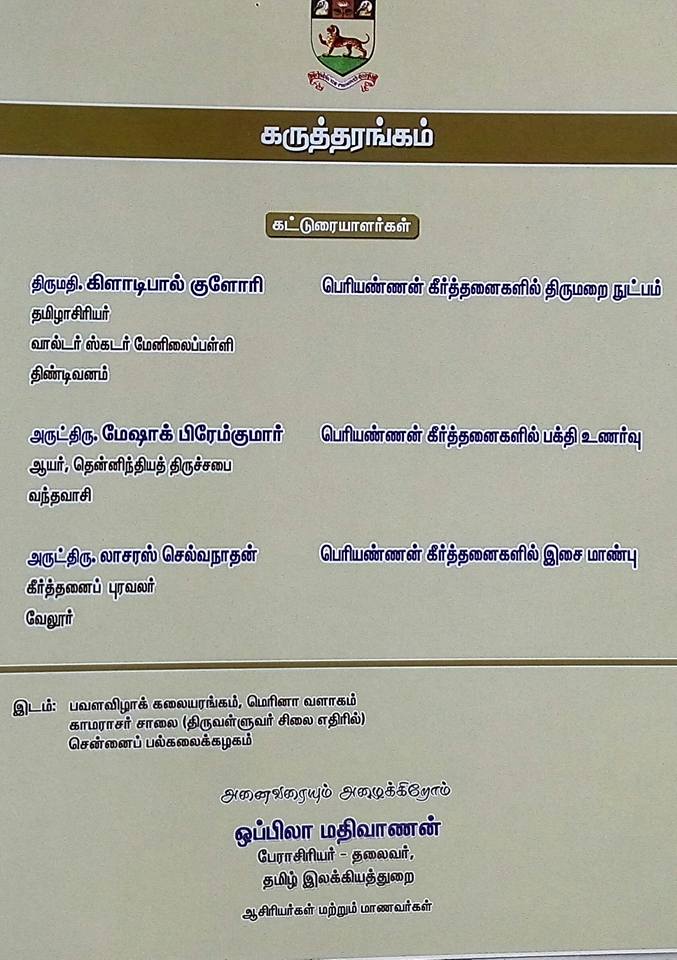 கருத்தரங்கம்
கட்டுரையாளர்கள்
திருமதி. கிளாடிபால் குளோரி
பெரியண்ணன் கீர்த்தனைகளில் திருமறை நுட்பம்
தமிழாசிரியர்
வால்டர் ஸ்கடர் மேனிலைப்பள்ளி
திண்டிவனம்
அருட்திரு. மேஷாக் பிரேம்குமார்
பெரியண்ணன் கீர்த்தனைகளில் பக்தி உணர்வு
ஆயர், தென்னிந்தியத் திருச்சபை
வந்தவாசி
அருட்திரு. லாசரஸ் செல்வநாதன்
பெரியண்ணன் கீர்த்தனைகளில் இசை மாண்பு
கீர்த்தனைப் புரவலர்
வேலூர்
இடம்: பவளவிழாக் கலையரங்கம், மெரினா வளாகம்
காமராசர் சாலை (திருவள்ளுவர் சிலை எதிரில்)
சென்னைப் பல்கலைக்கழகம்
அனைவரையும் அழைக்கிறோம்
ஒப்பிலா மதிவாணன்
பேராசிரியர் - தலைவர்,
தமிழ் இலக்கியத்துறை
ஆசிரியர்கள் மற்றும் மாணவர்கள்